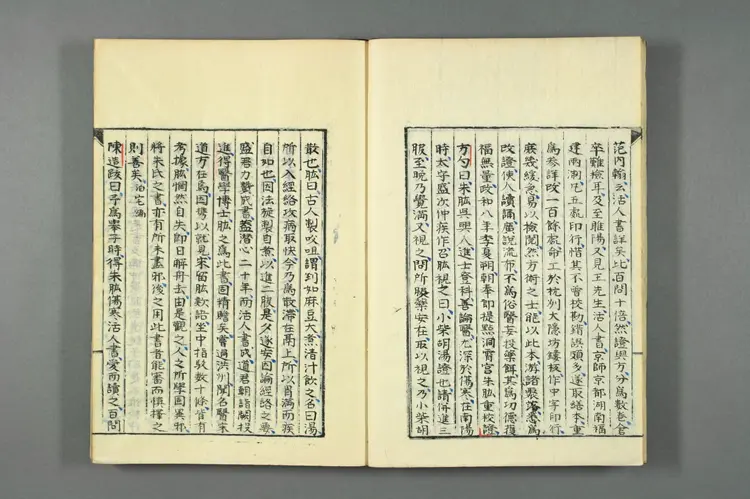 范內翰云活人書詳矣比百問十倍然證與方分爲數卷倉
卒難檢耳及至睢陽又見王先生活人書京師京都湖南福
建兩浙凡五處印行惜其不曾校勘錯誤頗多遂取繕本重
爲參詳改一百餘處命工於杭州大隱坊鏤板作中字印行
庶幾緩急易以檢閱然方術之士能以此本游諸聚落悉爲
改證使人讀誦廣說流布不爲俗醫妄投藥餌其爲功德獲
福無量政和八年季夏朔朝奉郎提點洞霄宮朱肱重校證
方勺曰朱肱吳興人進士登科善論醫尤深於傷寒在南陽
時太守盛次仲疾作召肱視之曰小柴胡湯證也請併進三
服至晚乃覺滿又視之問所服藥安在取以視之乃小柴胡
散也肱曰古人製㕮咀謂剉如麻豆大煮清汁飲之名曰湯
所以入經絡攻病取快今乃爲散滯在鬲上所以胃滿而疾
自如也因法旋製自煮以進二服是夕遂安因論經絡之要
盛君力贊成書蓋潛心二十年而活人書成道君朝詣闕投
進得醫學博士肱之爲此書固精贍矣嘗過洪州聞名醫宋
道方在焉因攜以就見宋留肱欵語坐中指駁數十條皆有
考據肱惘然自失即日解舟去由是觀之人之所學固異邪
將朱氏之書亦有所未盡邪後之用此書者能審而慎擇之
則善矣泊宅編
陳造跋曰予爲擧子時得朱肱傷寒活人書愛而讀之百問